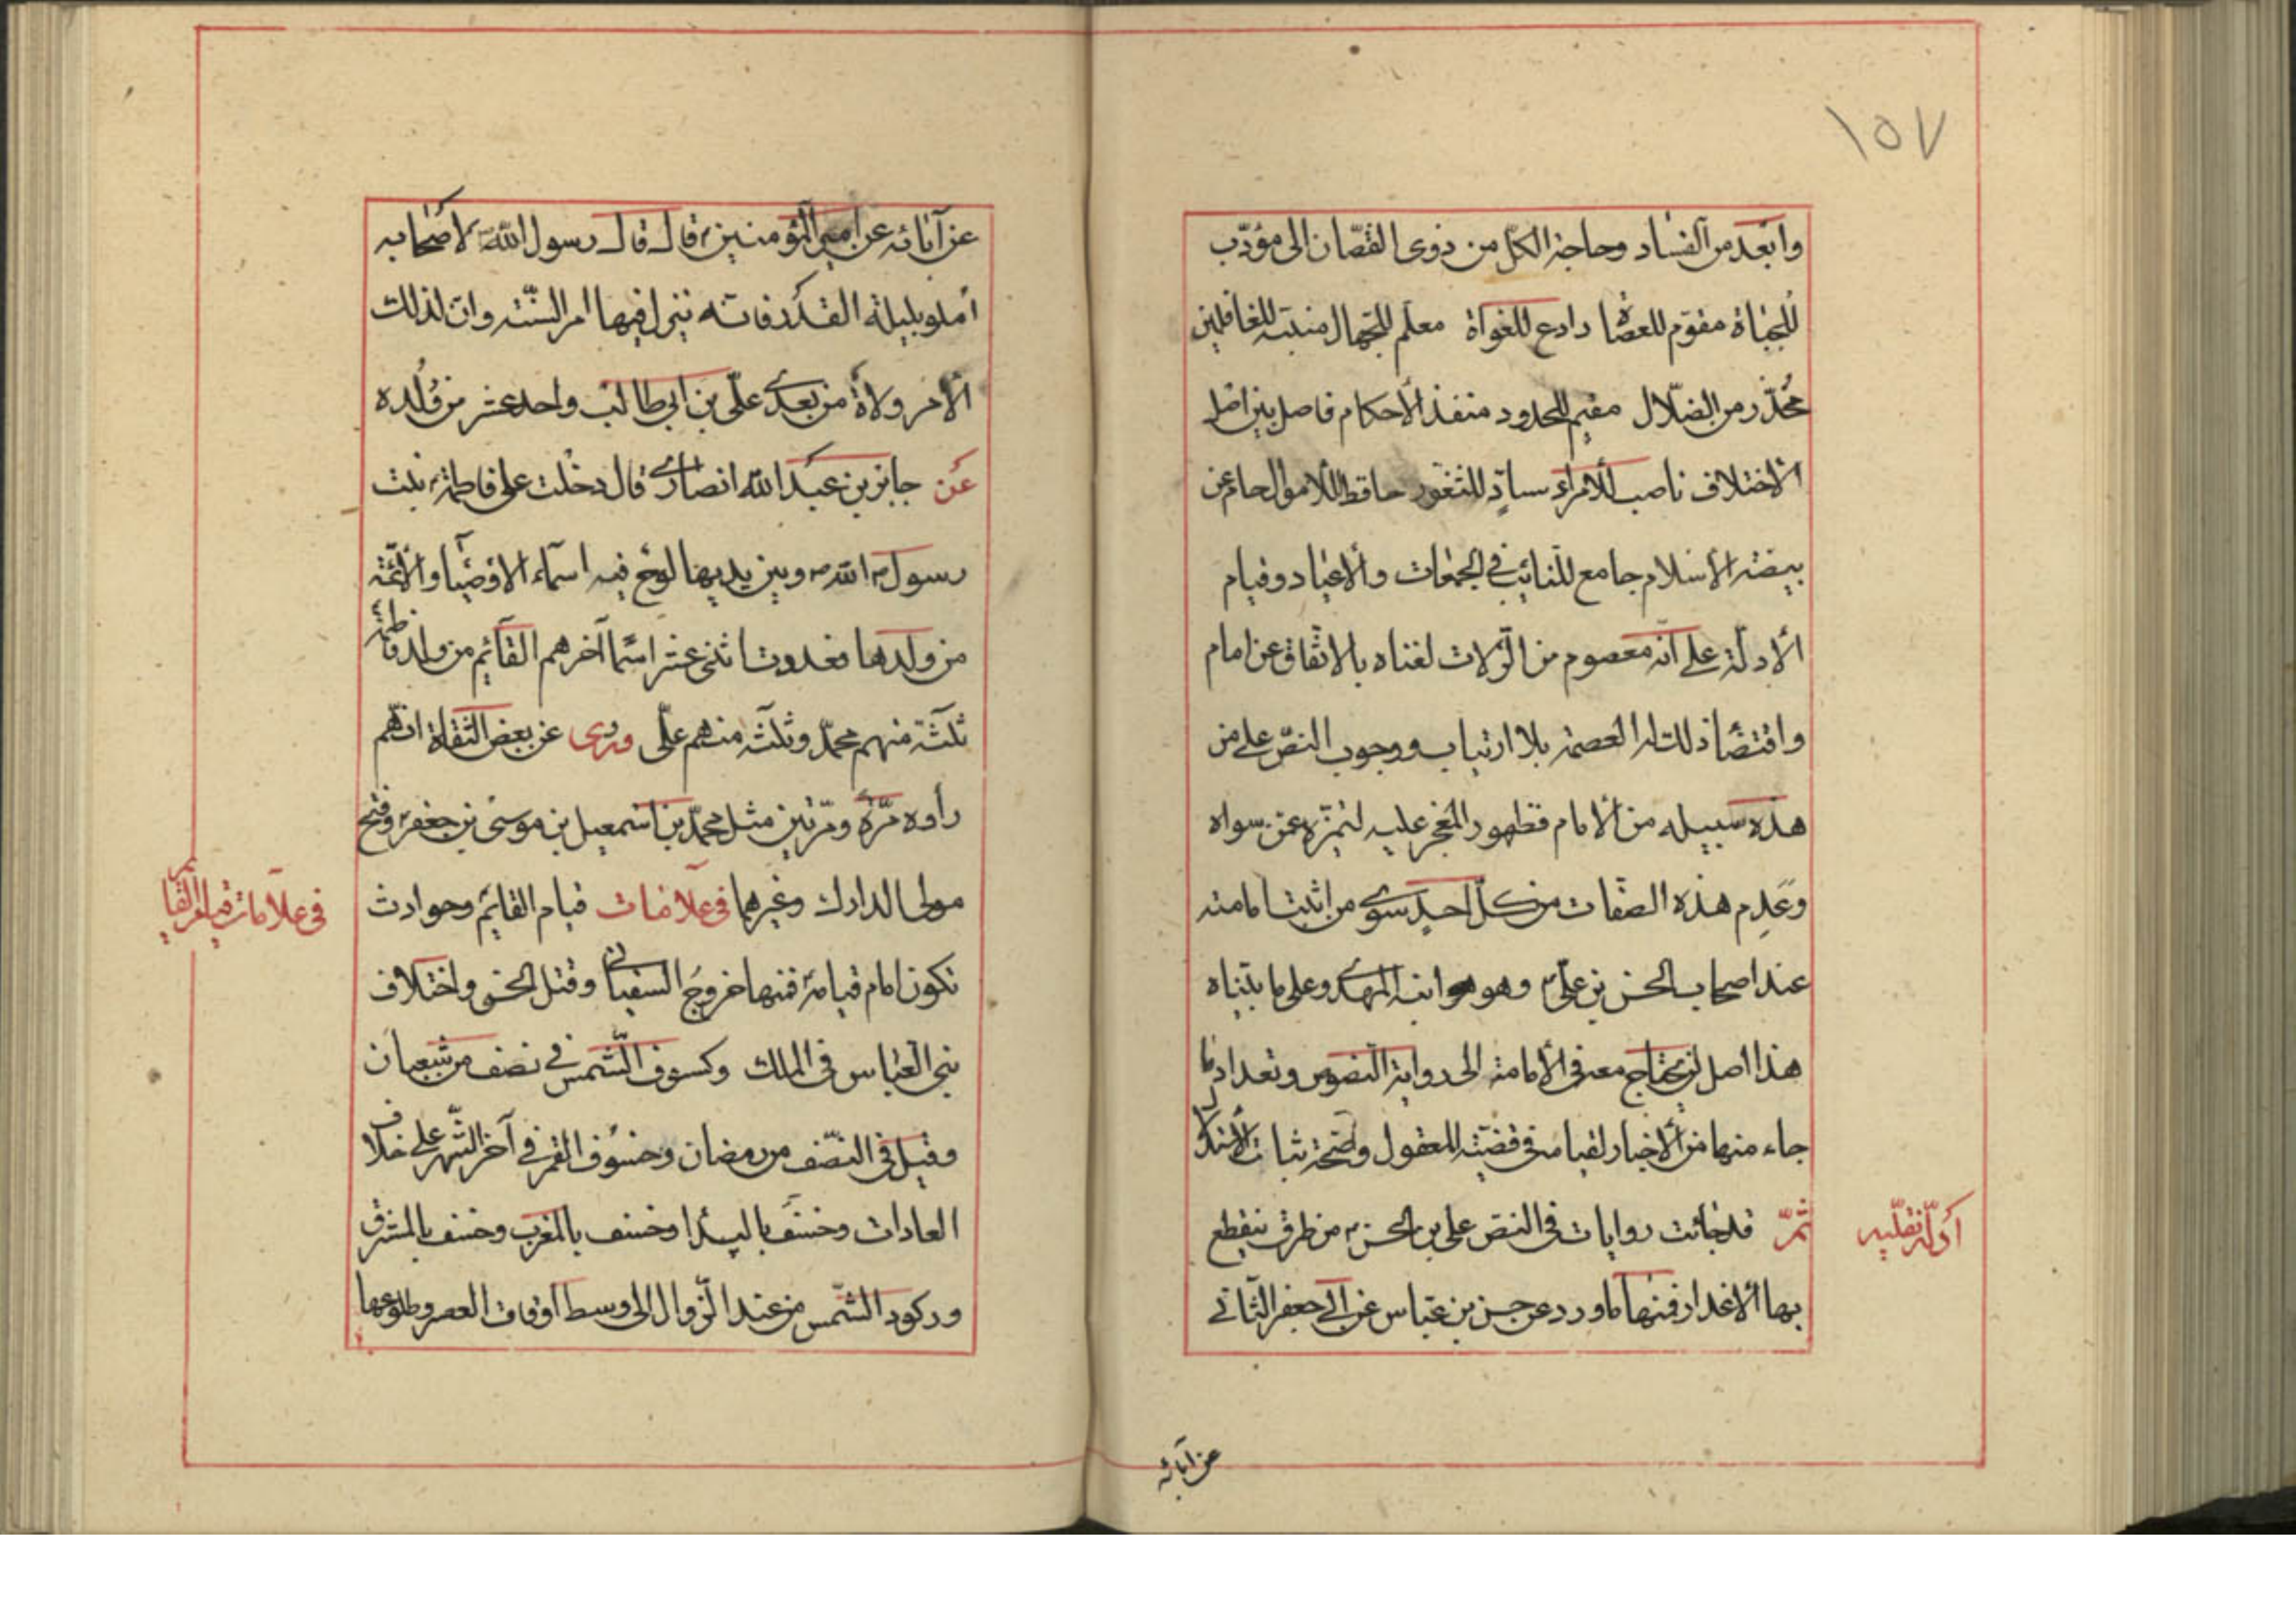 ١٥٧
وابعد من الفساد وحاجة الكل من ذوی النقصان الی مؤدّب
للجناة مقوّم للعصاة رادع للغواة معلّم للجهال منبّه للغافلین
محذّر من الضلّال مقیم للحدود منفذ الأحكام فاصل بین اهل
الاختلاف ناصب للأمراء سادّ للثغور حافظ للأموال حام عن
بیضة الأسلام جامع للنّاس فی الجمعات والأعیاد وقیام
الأدلّة علی انّه معصوم من الزّلات لغناه بالاتّفاق عن امام
واقتضا ذلك له العصمة بلا ارتیاب ووجوب النصّ علی من
هذه سبیله من الأنام فظهور المعجز علیه لتمیّزه عمّن سواه
وعدم هذه الصفات من كلّ احد سوی من اثبت امامته
عند اصحاب الحسن بن علیّ وهو ابنه المهدی وعلی ما بیّناه
هذا اصل لن یحتاج معه فی الأمامة الی روایة النصوص وتعداد ما
جاء منها من الأخبار لقیامه فی قضیّة العقول وصحّة ثبات الأستدلال
ثمّ قد جائت روایات فی النصّ علی بن الحسن من طرق ینقطع
بها الأعذار فمنها ما ورد عن حسن بن عبّاس عن ابی جعفر الثانی
ادلّه نقلیه
عن آبائه
عن آبائه عن امیر المؤمنین قال قال رسول الله لأصحابه
آمنو بلیلة القدر فانه ینزل فیها امر السّنة وان لذلك
الأمر ولاة من بعدی علیّ بن ابی طالب واحد عشر من ولده
عن جابر بن عبد الله انصاری قال دخلت علی فاطمة بنت
رسول الله وبین یدیها لوح فیه اسماء الاوصیا والأئمّة
من ولدها فعددت اثنی عشر اسما آخرهم القائم من ولد فاطمة
ثلثة منهم محمّد وثلثه منهم علّی وروی عن بعض الثقاة انهم
رأوه مرّة ومرّتین مثل محمّد بن اسمعیل بن موسی بن جعفر وفتح
مولی الدارك وغیرهما فی علامات قیام القائم وحوادث
تكون امام قیامه فمنها خروج السفیانی وقتل الحسنی واختلاف
بنی العباس فی الملك وكسوف الشمس فی نصف من شعبان
وقیل فی النصف من رمضان وخسوف القمر فی آخر الشهر علی خلاف
العادات وخسف بالبیدا وخسف بالمغرب وخسف بالمشرق
وركود الشمس من عند الزوال الی وسط اوقات العصر وطلوعها
فی علامات قیام القائم